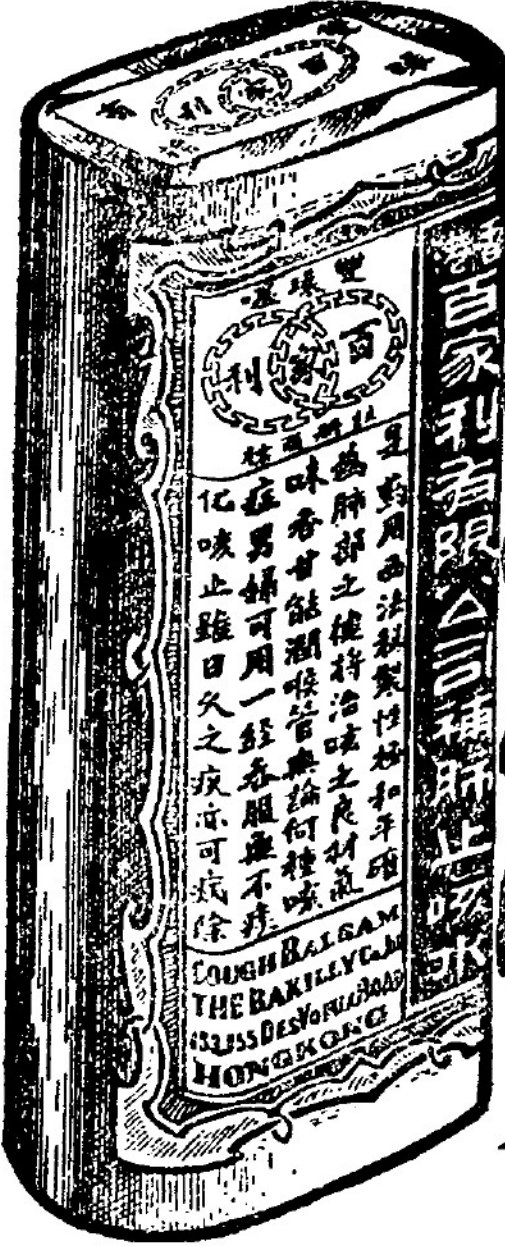 百家利
香港百家利有限公司補肺止咳水
雙環嘜
百家利
是藥用西法秘製性極和平確
為肺部之 將治咳之良材氣
味香甘能潤喉管無論何種咳
症男婦可用一經吞服無不痰
化咳止雖日久之疾亦可 除
COUGH BALSAM
THE BAKILLY Co.
DES VOEUX ROAD
HONGKONG